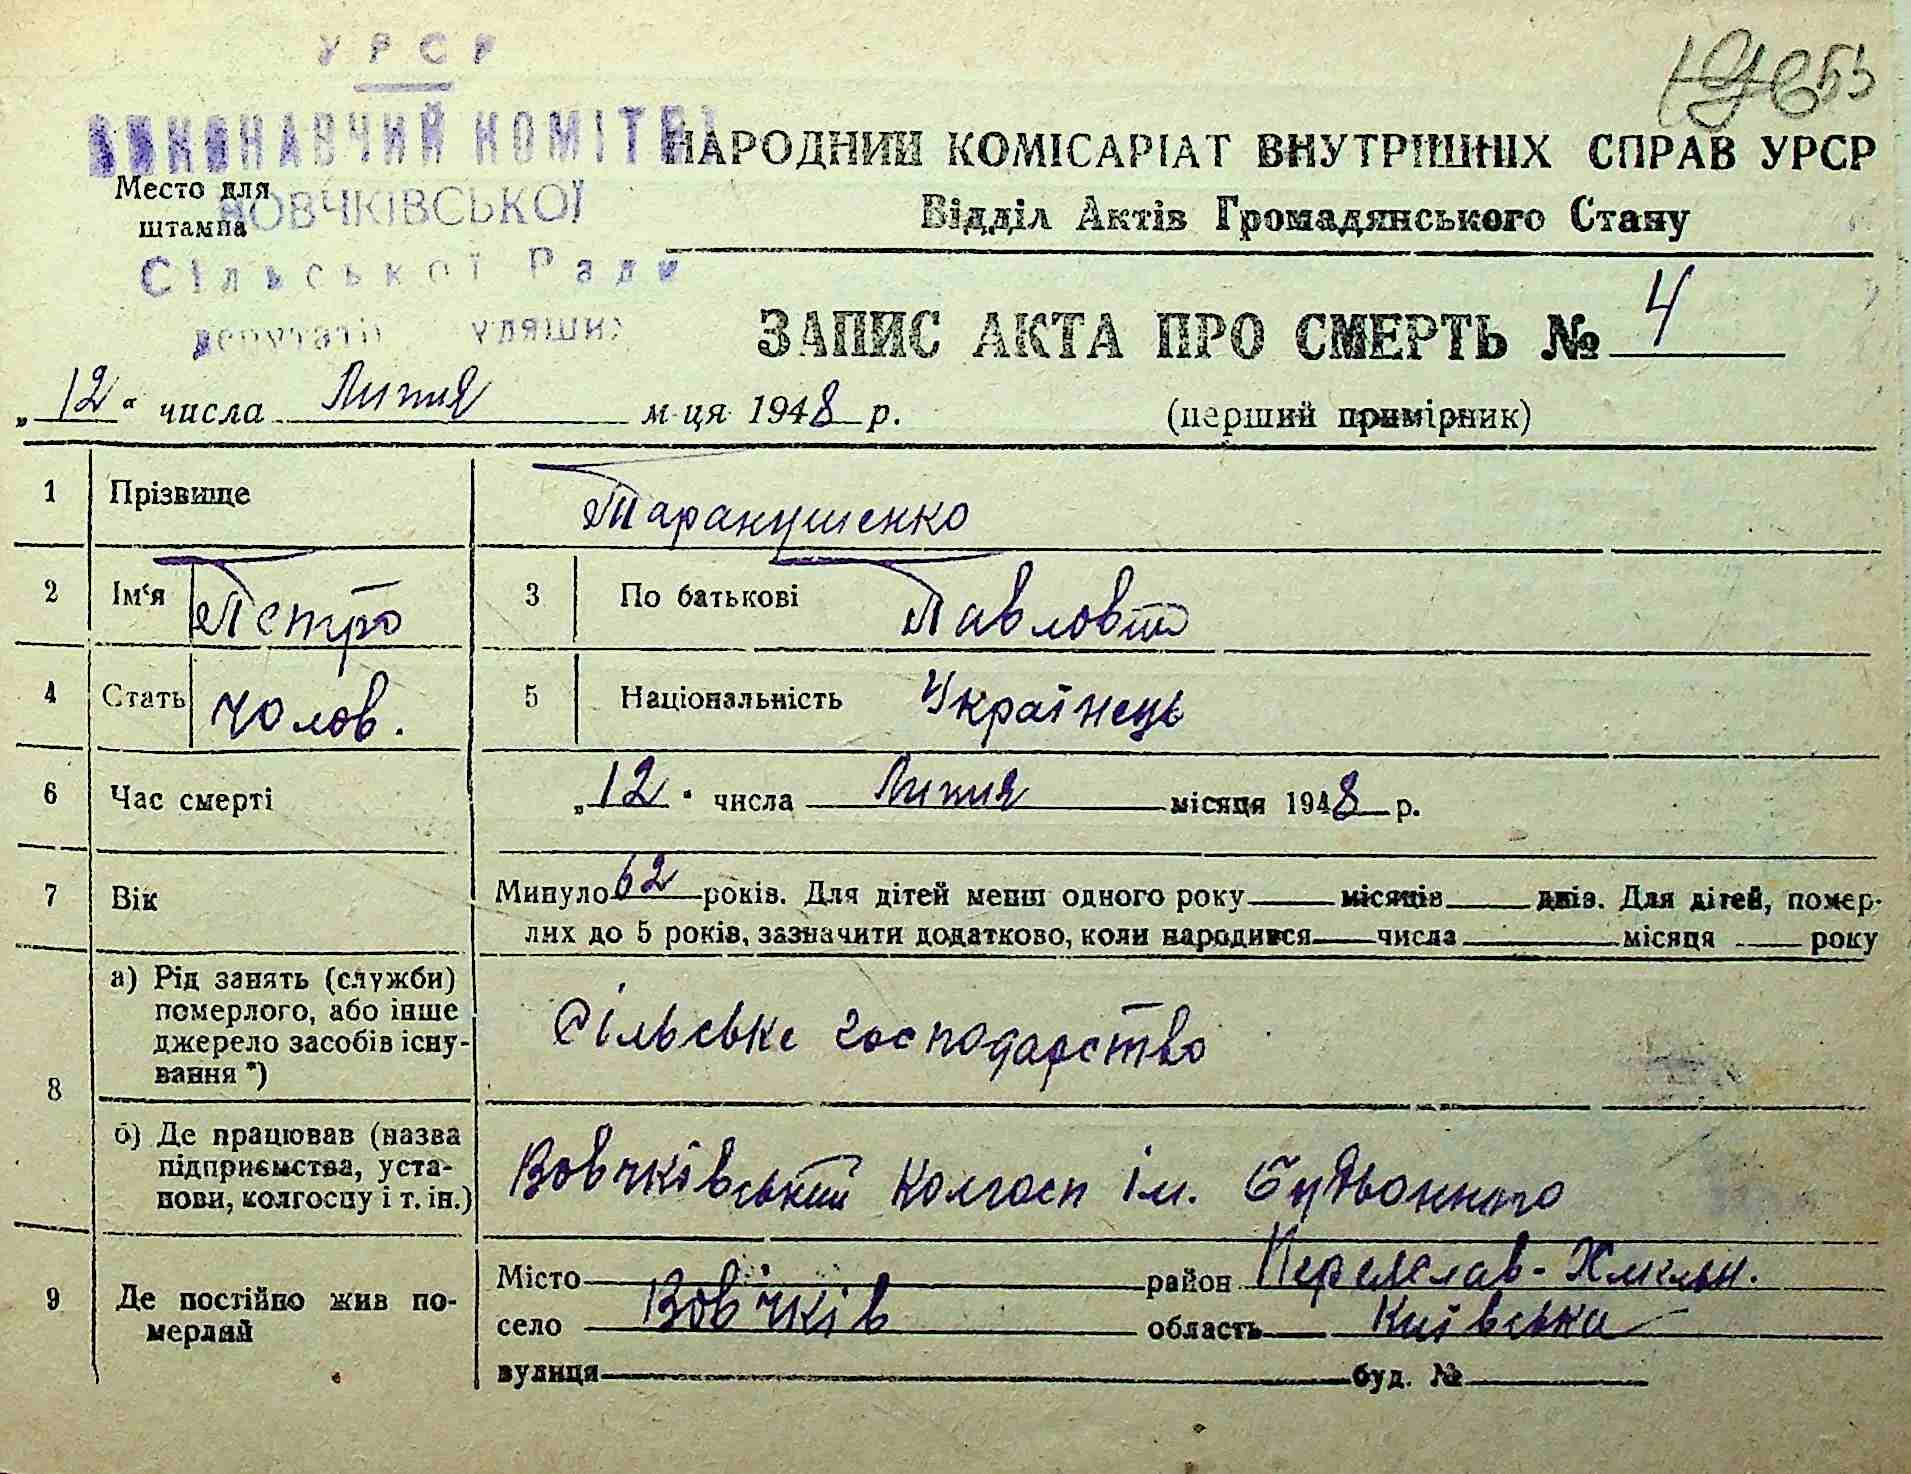 УРСР
ВИКОНАВЧИЙ КОМІТЕТ
НАРОДНИЙ КОМІСАРІАТ ВНУТРІШНІХ СПРАВ УРСР
Место для
штампа
ВОВЧКІВСЬКОЇ
Відділ Актів Громадянського Стану
Сільської Ради
ЗАПИС АКТА ПРО СМЕРТЬ № 4
„12“ числа Липня м-ця 1948 р. (перший примірник)
1 Прізвище Таранушенко
2 Ім‘я Петро 3 По батькові Павлович
4 Стать чолов. 5 Національність Українець
6 Час смерті „12“ числа Липня місяця 1948 р.
7 Вік Минуло 62 років. Для дітей менш одного року — місяців — днів. Для дітей, помер-
лих до 5 років, зазначити додатково, коли народився — числа — місяця — року
8 а) Рід занять (служби)
померлого, або інше
джерело засобів існу-
вання *)
Сільське господарство
б) Де працював (назва
підприємства, уста-
нови, колгоспу і т. ін.)
Вовчківський колгосп ім. Будьонного
9 Де постійно жив по-
мерлий
Місто район Переяслав-Хмельн.
село Вовчків область Київська
вулиця буд. №